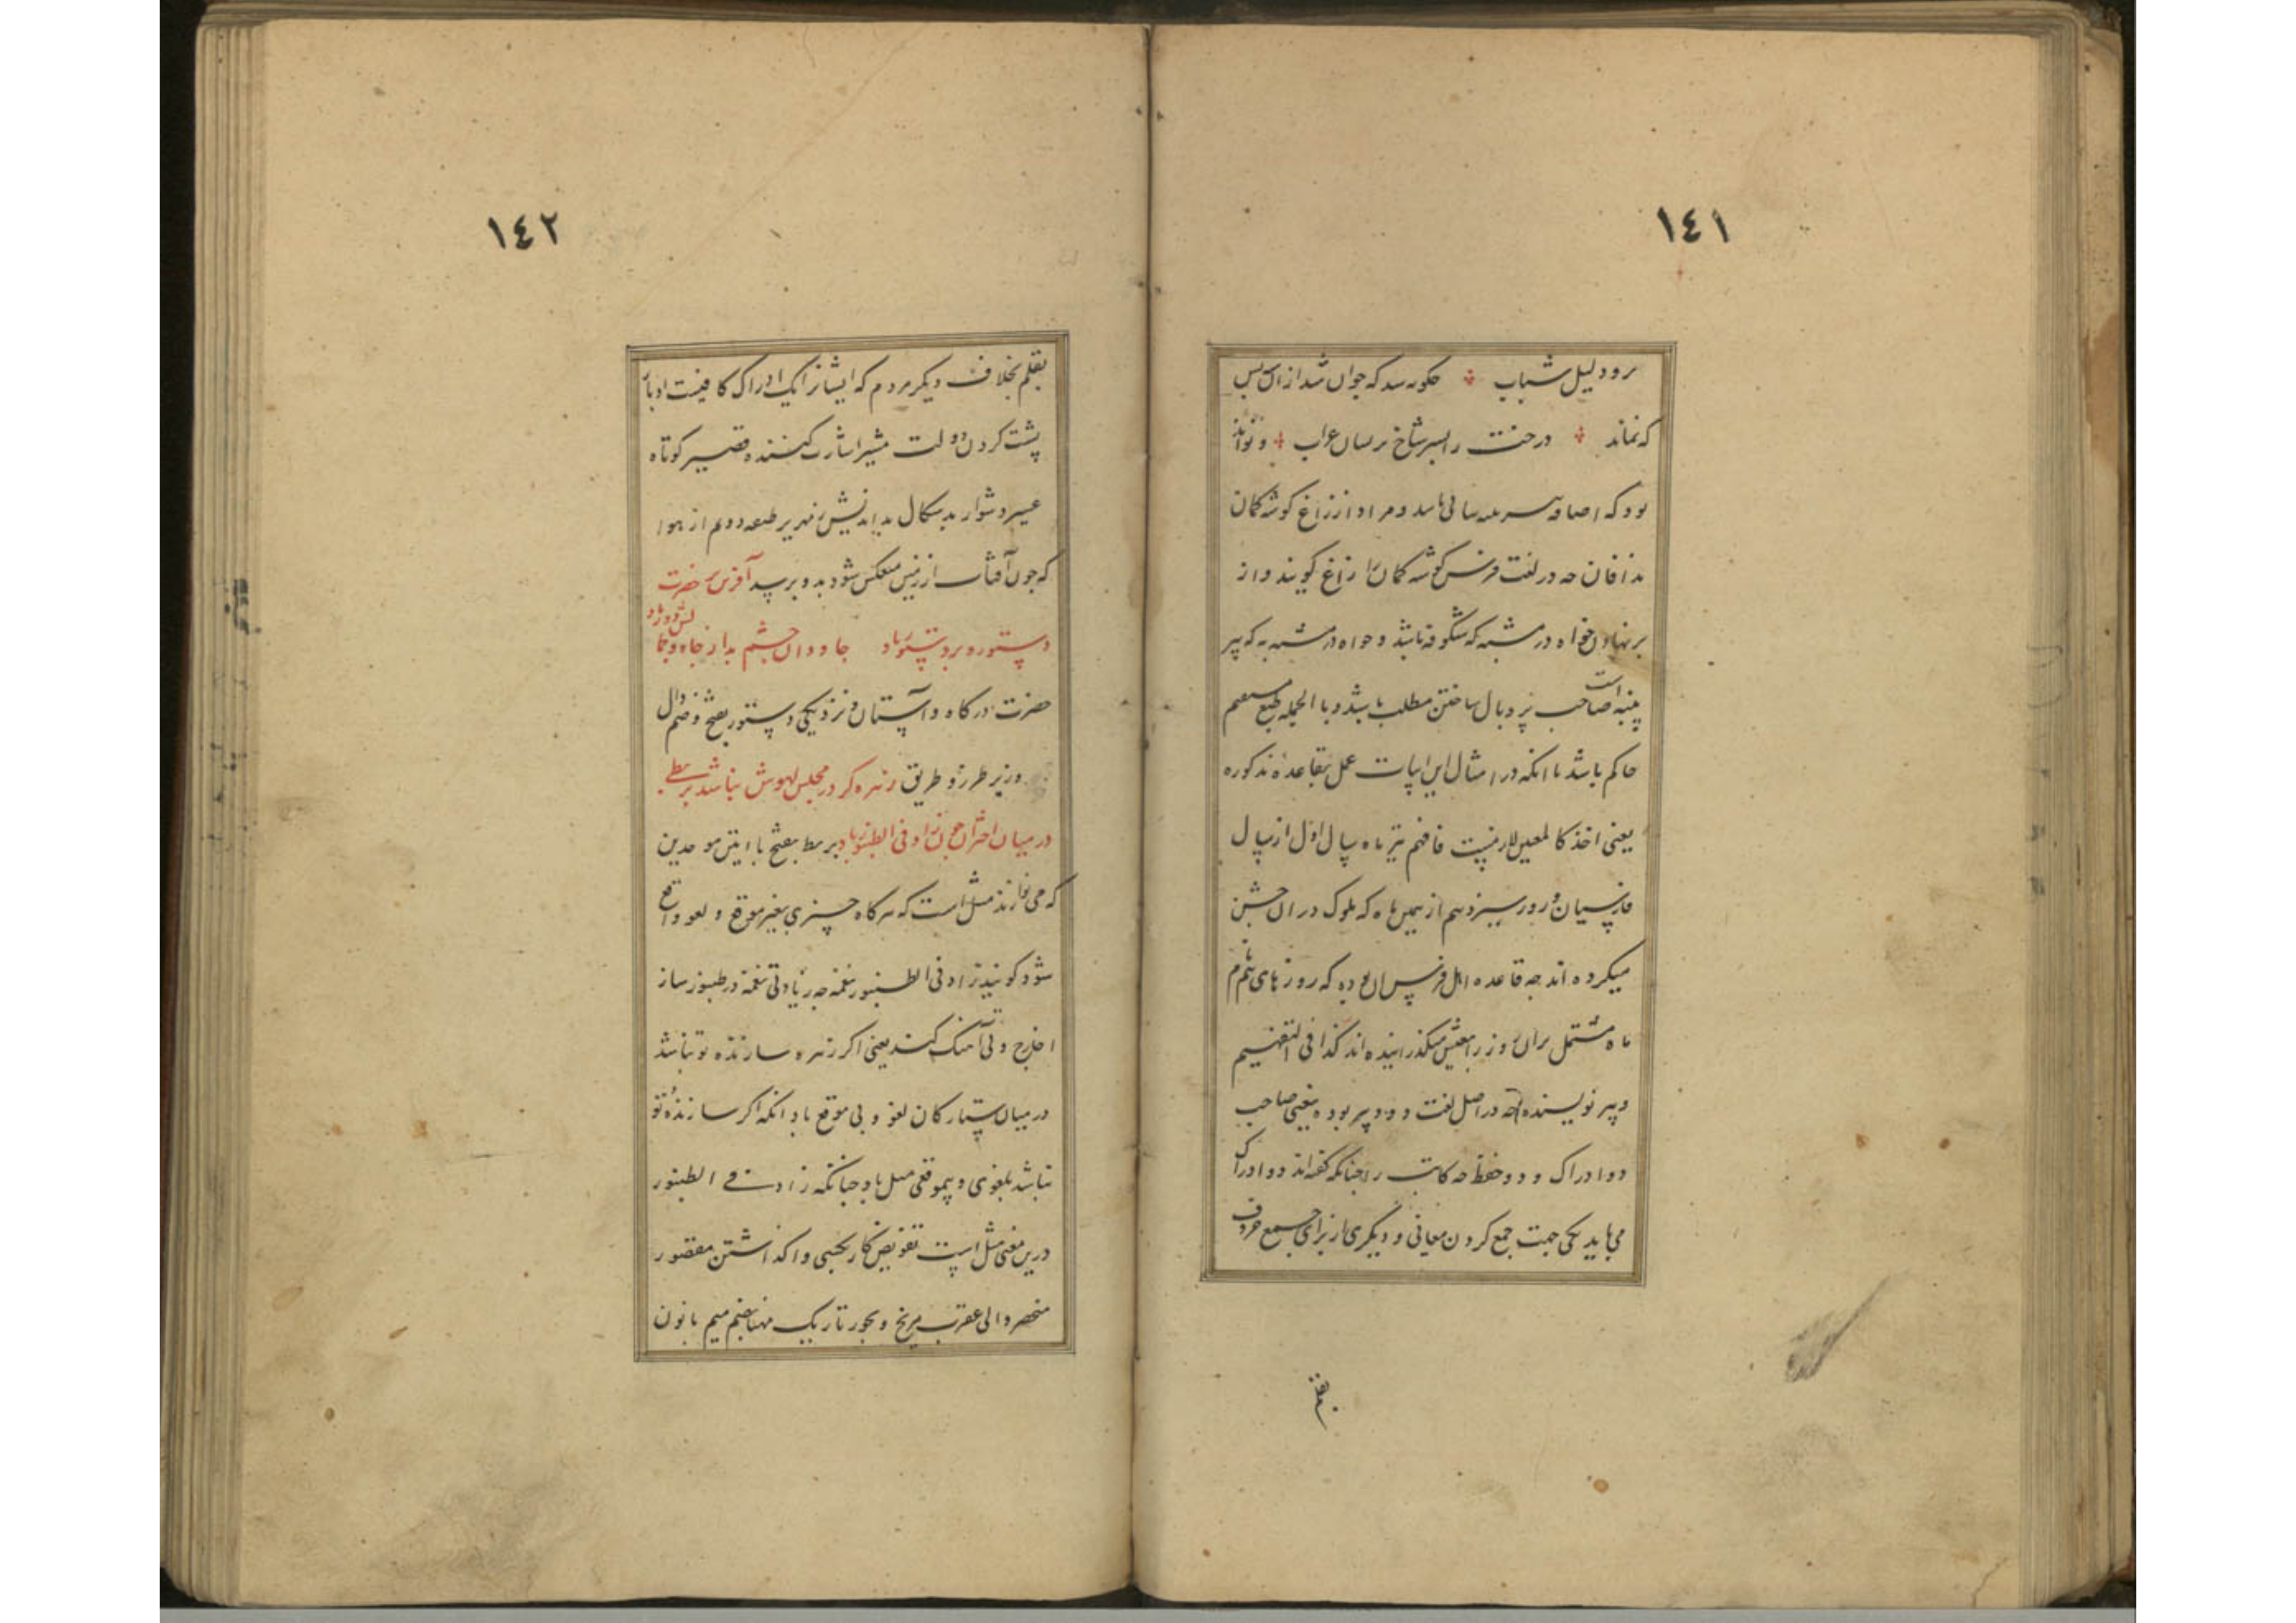 ١٤١
برو دلیل شباب حکونه سد که جوان شد از ان پس
که نماند درخت را بسر شاخ بر لسان غراب و تواند
بود که اضافه سر به سالی باشد و مراد از زاغ کوشه کمان
بد افان چه در لغت فرس کوشه کمان را زاغ کویند و از
بر نهادن خواه در مشبه که شکوفه باشد و خواه در مشبه به که پیر
پنبه است صاحب پر و بال ساختن مطلب باشد و بالجمله طبع مستقیم
حاکم باشد با انکه در امثال این ابیات عمل بقاعده مذکوره
یعنی اخذ کالمعین لازم نیست فافهم تیر ماه سال اول از سال
فارسیان و روز سیزدهم از همین ماه که ملوک در ان جشن
میکرده اند چه قاعده اهل فرس ان بوده که روزهای همنام
ماه مشتمل بران روز را بعیش میکذرانیده اند کذا فی التفهیم
دبیر نویسنده چه در اصل لغت دو ویر بوده یعنی صاحب
دو ادراک و دو حفظ چه کاتب را چنانکه کفته اند دو ادراک
می باید یکی جهت جمع کردن معانی و دیکری از برای جمع حروف
بقلم
١٤٢
بقلم بخلاف دیکر مردم که ایشانرا یک ادراک کافیست ادبار
پشت کردن دولت مشیر اشارت کننده قصیر کوتاه
عسیر دشوار بدسکال بداندیش زمهریر طبقه دوم از هوا
که چون آفتاب از زمین منعکس شود بدو برسد آفرین بر حضرت
دستور و بر دستور باد جاودان چشم بد از جاه و جمالش دور باد
حضرت درکاه و آستان و نزدیکی دستور بفتح و ضم دال
وزیر طرز و طریق زهره کر در مجلس لهوش نباشد بربطی
در میان اختران چون زاد فی الطنبور باد بربط بفتح بائین موحدین
که می نوازند مثل است که هرکاه چیزی بغیر موقع و لغو واقع
شود کویند زاد فی الطنبور نغمة چه زیادتی نغمه در طنبور ساز
را خارج و بی آهنک کند یعنی اکر زهره سازنده تو نباشد
در میان ستارکان لغو و بی موقع باد انکه اکر سازنده تو
نباشد بلغوی و بیموقعی مثل باد چنانکه زاد فی الطنبور
درین معنی مثل است تفویض کار بکسی واکذاشتن مقصور
منحصر والی عقرب مریخ دیجور تاریک مهنا بضم میم با نون